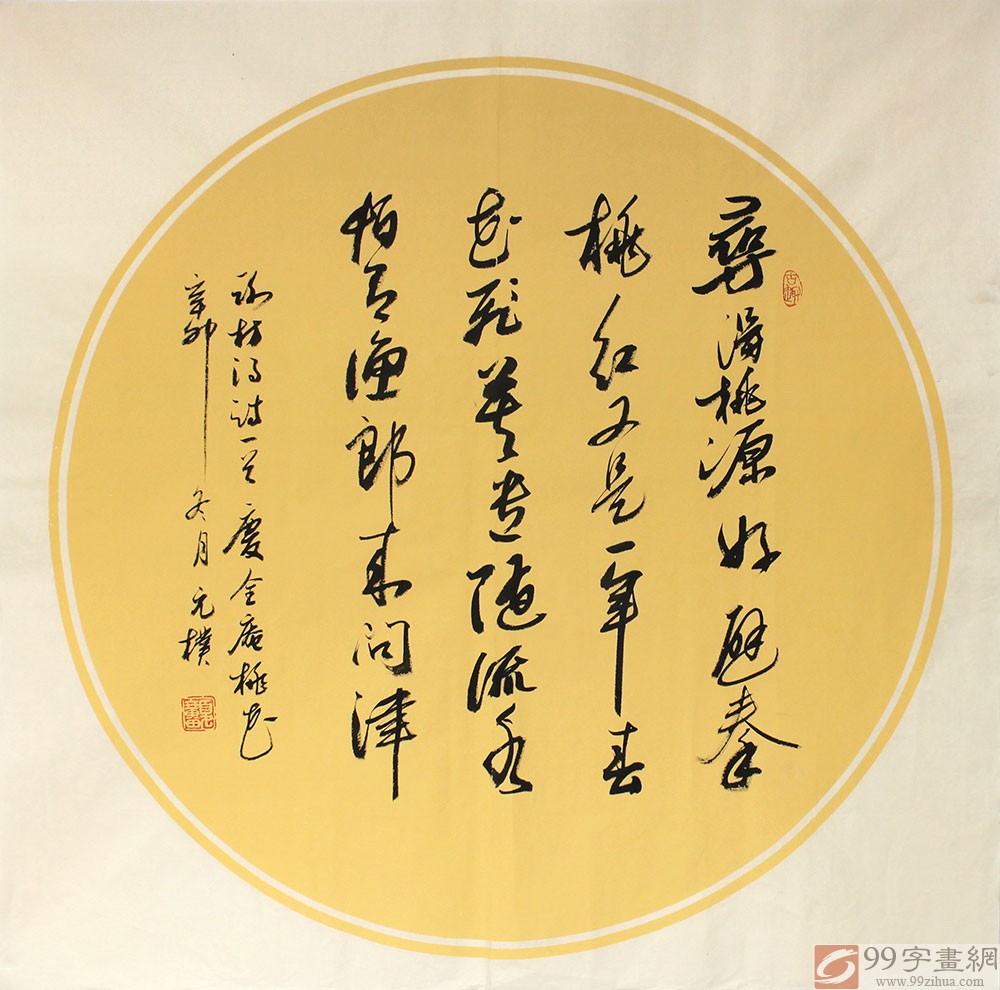 尋得桃源好避秦
桃紅又是一年春
花飛莫遣隨流水
怕有漁郎來問津
謝枋得詩一首慶全庵桃花
辛卯冬月元樸
99字畫網
www.99zihua.com